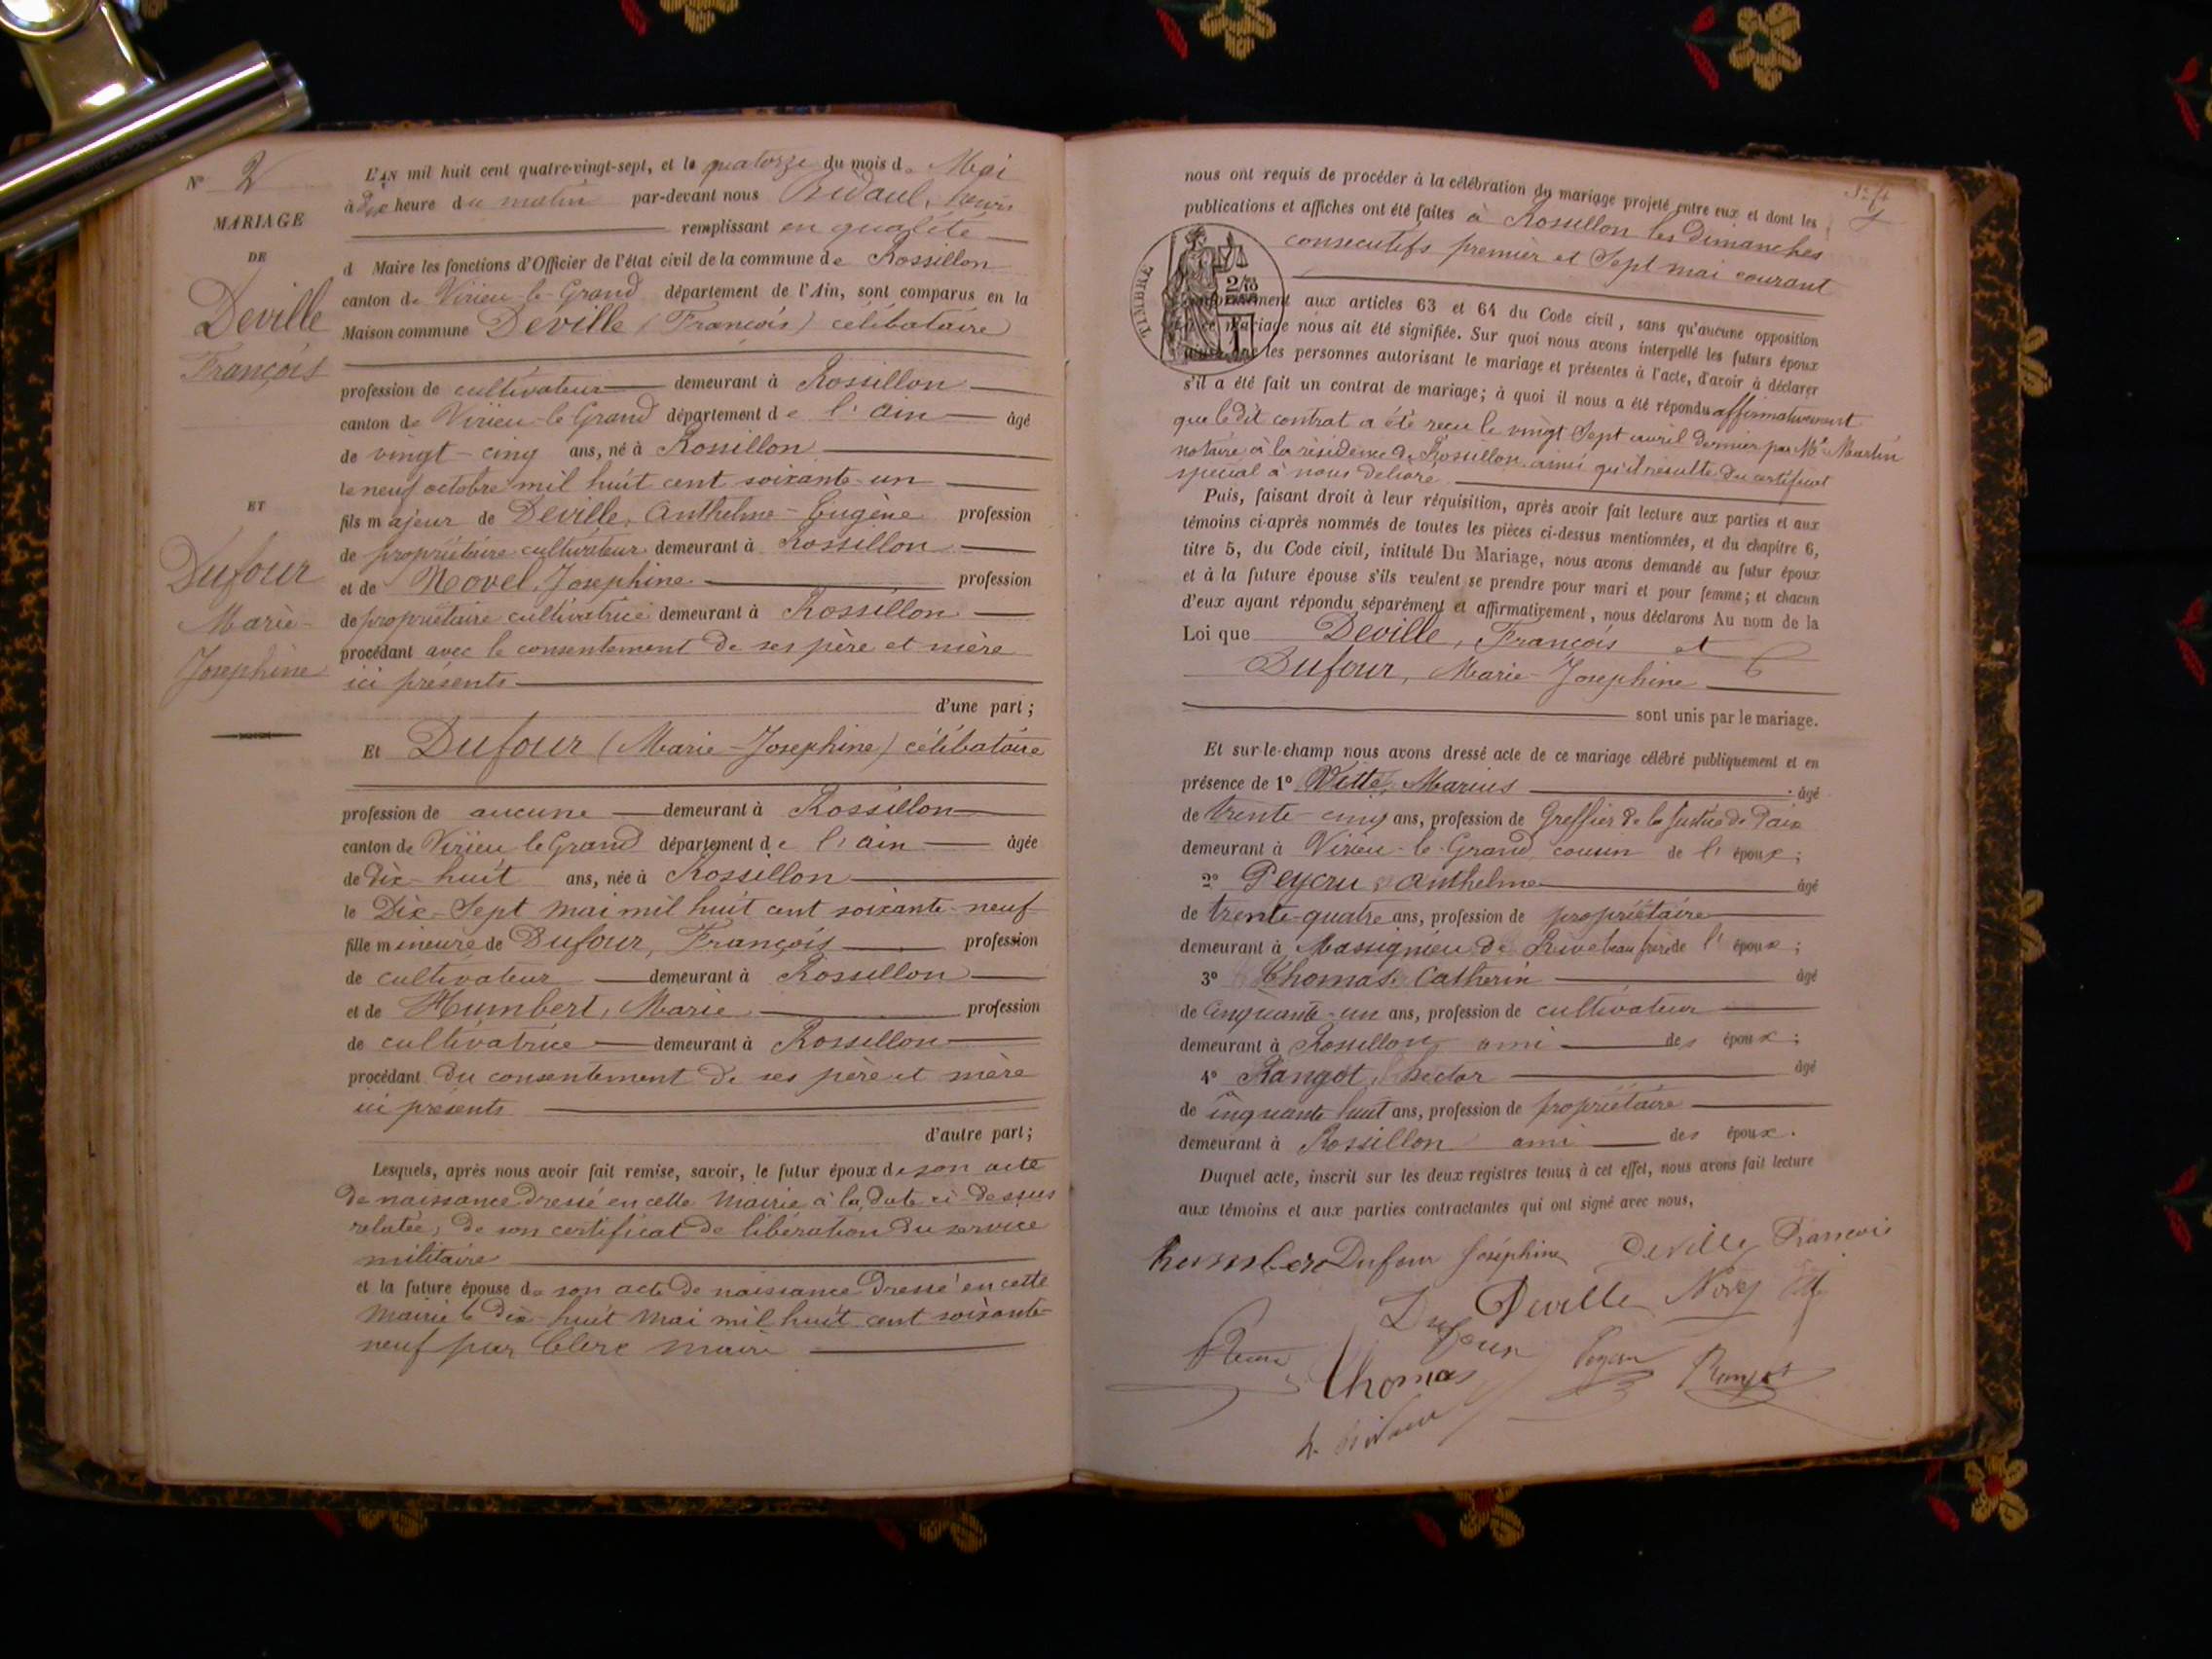 N° 2
MARIAGE
DE
Deville
François
ET
Dufour
Marie-
Josephine
L'AN mil huit cent quatre-vingt-sept, et le quatorze du mois de Mai
à dix heure du matin par-devant nous
remplissant en qualité
d Maire les fonctions d'Officier de l'état civil de la commune de Rossillon
canton de Virieu-le-Grand département de l'Ain, sont comparus en la
Maison commune Deville (François) célibataire
profession de cultivateur demeurant à Rossillon
canton de Virieu-le-Grand département de l'ain âgé
de vingt-cinq ans, né à Rossillon
le neuf octobre mil huit cent soixante-un
fils majeur de Deville, Anthelme-Eugène profession
de propriétaire cultivateur demeurant à Rossillon
et de Novel, Josephine profession
de propriétaire cultivatrice demeurant à Rossillon
procédant avec le consentement de ses père et mère
ici présents
d'une part;
Et Dufour (Marie-Josephine) célibataire
profession de aucune demeurant à Rossillon
canton de Virieu le Grand département de l'ain âgée
de dix-huit ans, née à Rossillon
le Dix-Sept mai mil huit cent soixante-neuf
fille mineure de Dufour, François profession
de cultivateur demeurant à Rossillon
et de Humbert, Marie profession
de cultivatrice demeurant à Rossillon
procédant du consentement de ses père et mère
ici présents
d'autre part;
Lesquels, après nous avoir fait remise, savoir, le futur époux de son acte
de naissance dressé en cette Mairie à la date ci-dessus
relatée, de son certificat de libération du service
militaire
et la future épouse de son acte de naissance dressé en cette
Mairie le dix-huit mai mil huit cent soixante-
neuf par Clerc maire
nous ont requis de procéder à la célébration du mariage projeté entre eux et dont les
publications et affiches ont été faites à Rossillon les dimanches
consecutifs premier et Sept mai courant
TIMBRE
conformément aux articles 63 et 64 du Code civil, sans qu'aucune opposition
mariage nous ait été signifiée. Sur quoi nous avons interpellé les futurs époux
les personnes autorisant le mariage et présentes à l'acte, d'avoir à déclarer
s'il a été fait un contrat de mariage; à quoi il nous a été répondu affirmativement
que le dit contrat a été recu le vingt Sept avril dernier par Me Martin
notaire à la résidence de Rossillon ainsi qu'il résulte du certificat
spécial à nous délivré
Puis, faisant droit à leur réquisition, après avoir fait lecture aux parties et aux
témoins ci-après nommés de toutes les pièces ci-dessus mentionnées, et du chapitre 6,
titre 5, du Code civil, intitulé Du Mariage, nous avons demandé au futur époux
et à la future épouse s'ils veulent se prendre pour mari et pour femme; et chacun
d'eux ayant répondu séparément et affirmativement, nous déclarons Au nom de la
Loi que Deville, François et
Dufour, Marie-Josephine
sont unis par le mariage.
Et sur-le-champ nous avons dressé acte de ce mariage célébré publiquement et en
présence de 1° Marius âgé
de trente-cinq ans, profession de Greffier de la Justice de Paix
demeurant à Virieu-le-Grand cousin de l'époux;
2° Peycru, Anthelme âgé
de trente-quatre ans, profession de propriétaire
demeurant à Massignieu de Rive beau frère de l'époux;
3° Thomas, Catherin âgé
de Cinquante-un ans, profession de cultivateur
demeurant à Rossillon ami des époux;
4° Rangot, hector âgé
de cinquante huit ans, profession de propriétaire
demeurant à Rossillon ami des époux.
Duquel acte, inscrit sur les deux registres tenus à cet effet, nous avons fait lecture
aux témoins et aux parties contractantes qui ont signé avec nous,
Dufour Joséphine Deville François
Dufour Deville
Thomas Peycru Rangot